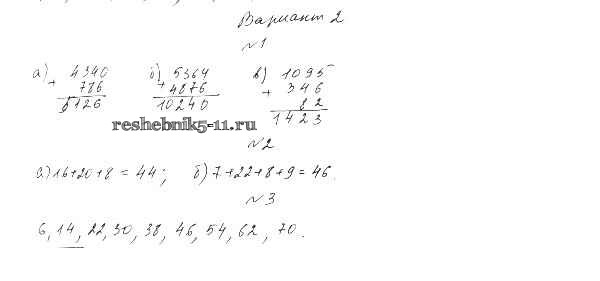 Вариант 2
№1
а) 4340 б) 5364 в) 1095
+ 786 + 4876 + 346
5126 10240 82
1423
reshebnik5-11.ru
№2
а) 16+20+8 = 44; б) 7+22+8+9 = 46.
№3
6, 14, 22, 30, 38, 46, 54, 62, 70.